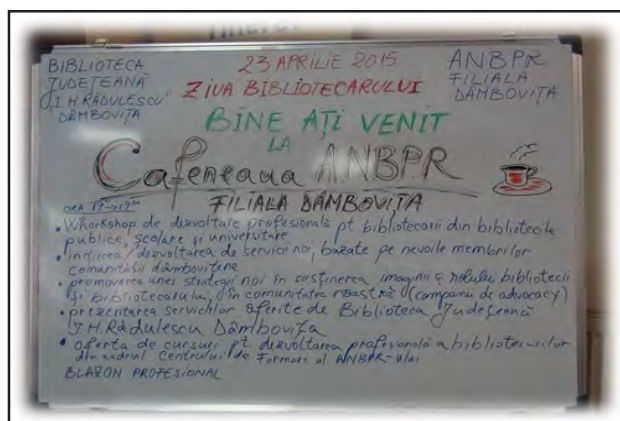 BIBLIOTECA
JUDEȚEANĂ
"I.H.RĂDULESCU"
DÂMBOVIȚA
23 APRILIE 2015
ZIUA BIBLIOTECARULUI
ANBPR
FILIALA
DÂMBOVIȚA
BINE AȚI VENIT
LA
Cafeneaua ANBPR
FILIALA DÂMBOVIȚA
ORA
• Whorkshop de dezvoltare profesională pt bibliotecarii din bibliotecile
publice, școlare și universitare
• inițierea/dezvoltarea de servicii noi, bazate pe nevoile membrilor
comunității dâmbovițene
• promovarea unei strategii noi în susținerea imaginii și rolului bibliotecii
și bibliotecarului, în comunitatea noastră (campanii de advocacy)
• prezentarea serviciilor oferite de Biblioteca Județeană
I.H.Rădulescu Dâmbovița
• oferta de cursuri pt dezvoltarea profesională a bibliotecarilor
din cadrul Centrului de Formare al ANBPR-ului
BLAZON PROFESIONAL